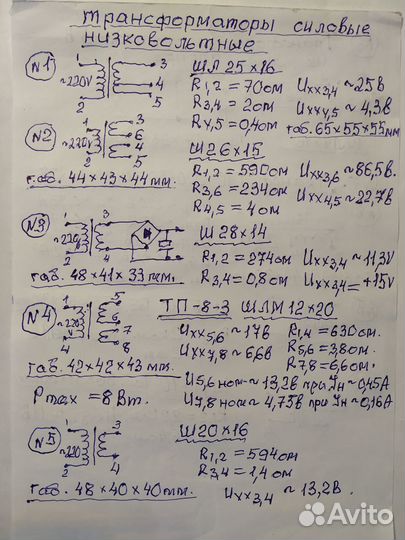 трансформаторы силовые
низковольтные
№1 1 2 ~220V 3 4 5
ШЛ 25×16
R1,2 = 70 ом Uхх3,4 ~ 25В
R3,4 = 2 ом Uхх4,5 ~ 4,3В
R4,5 = 0,4 ом габ. 65×55×55 мм
№2 1 2 ~220V 3 6 4 5
габ. 44×43×44 мм.
Ш26×15
R1,2 = 590 ом Uхх3,6 ~ 86,5В.
R3,6 = 234 ом Uхх4,5 ~ 22,7В
R4,5 = 4 ом
№3 1 2 ~220 3 4
габ. 48×41×33 мм.
Ш28×14
R1,2 = 274 ом Uхх3,4 ~ 11,3V
R3,4 = 0,8 ом Uхх3,4 = +15V
№4 1 4 ~220 V 5 6 7 8
габ. 42×42×43 мм.
Pmax = 8 Вт.
ТП-8-3 ШЛМ 12×20
Uхх5,6 ~ 17В R1,4 = 630 ом.
Uхх7,8 ~ 6,6В R5,6 = 3,8 ом.
R7,8 = 6,6 ом.
U5,6 ном ~ 13,2В при Iн ~ 0,45А
U7,8 ном ~ 4,75В при Iн ~ 0,16А
№5 1 2 ~220 3 4
габ. 48×40×40 мм.
Ш20×16
R1,2 = 594 ом
R3,4 = 1,4 ом
Uхх3,4 ~ 13,2В.
Avito